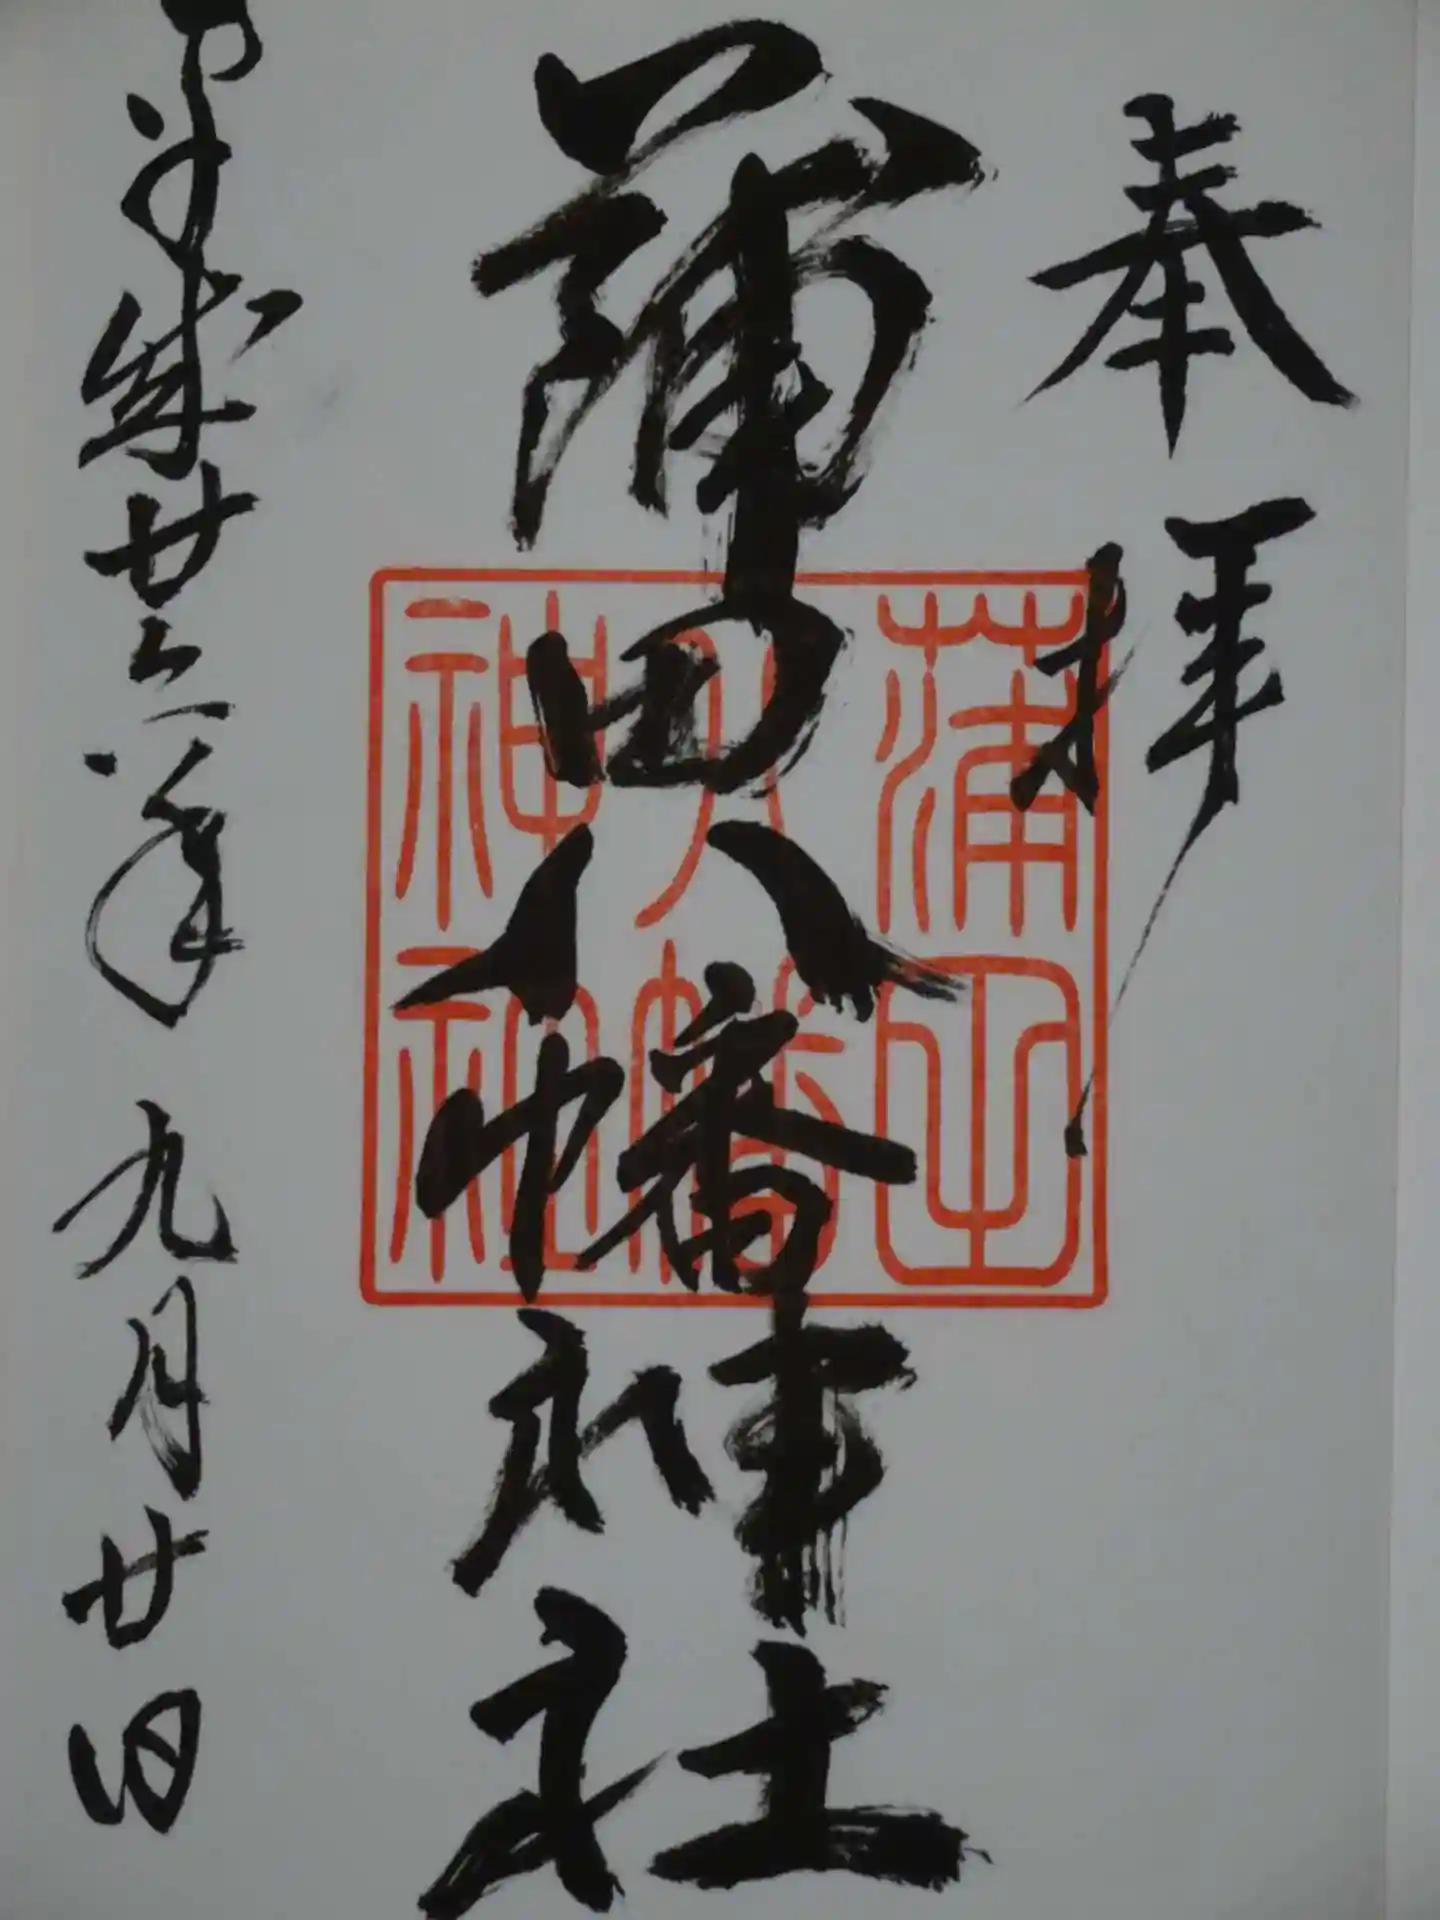 奉拝
蒲田八幡神社
平成廿三年九月廿日
蒲田
八幡
神社